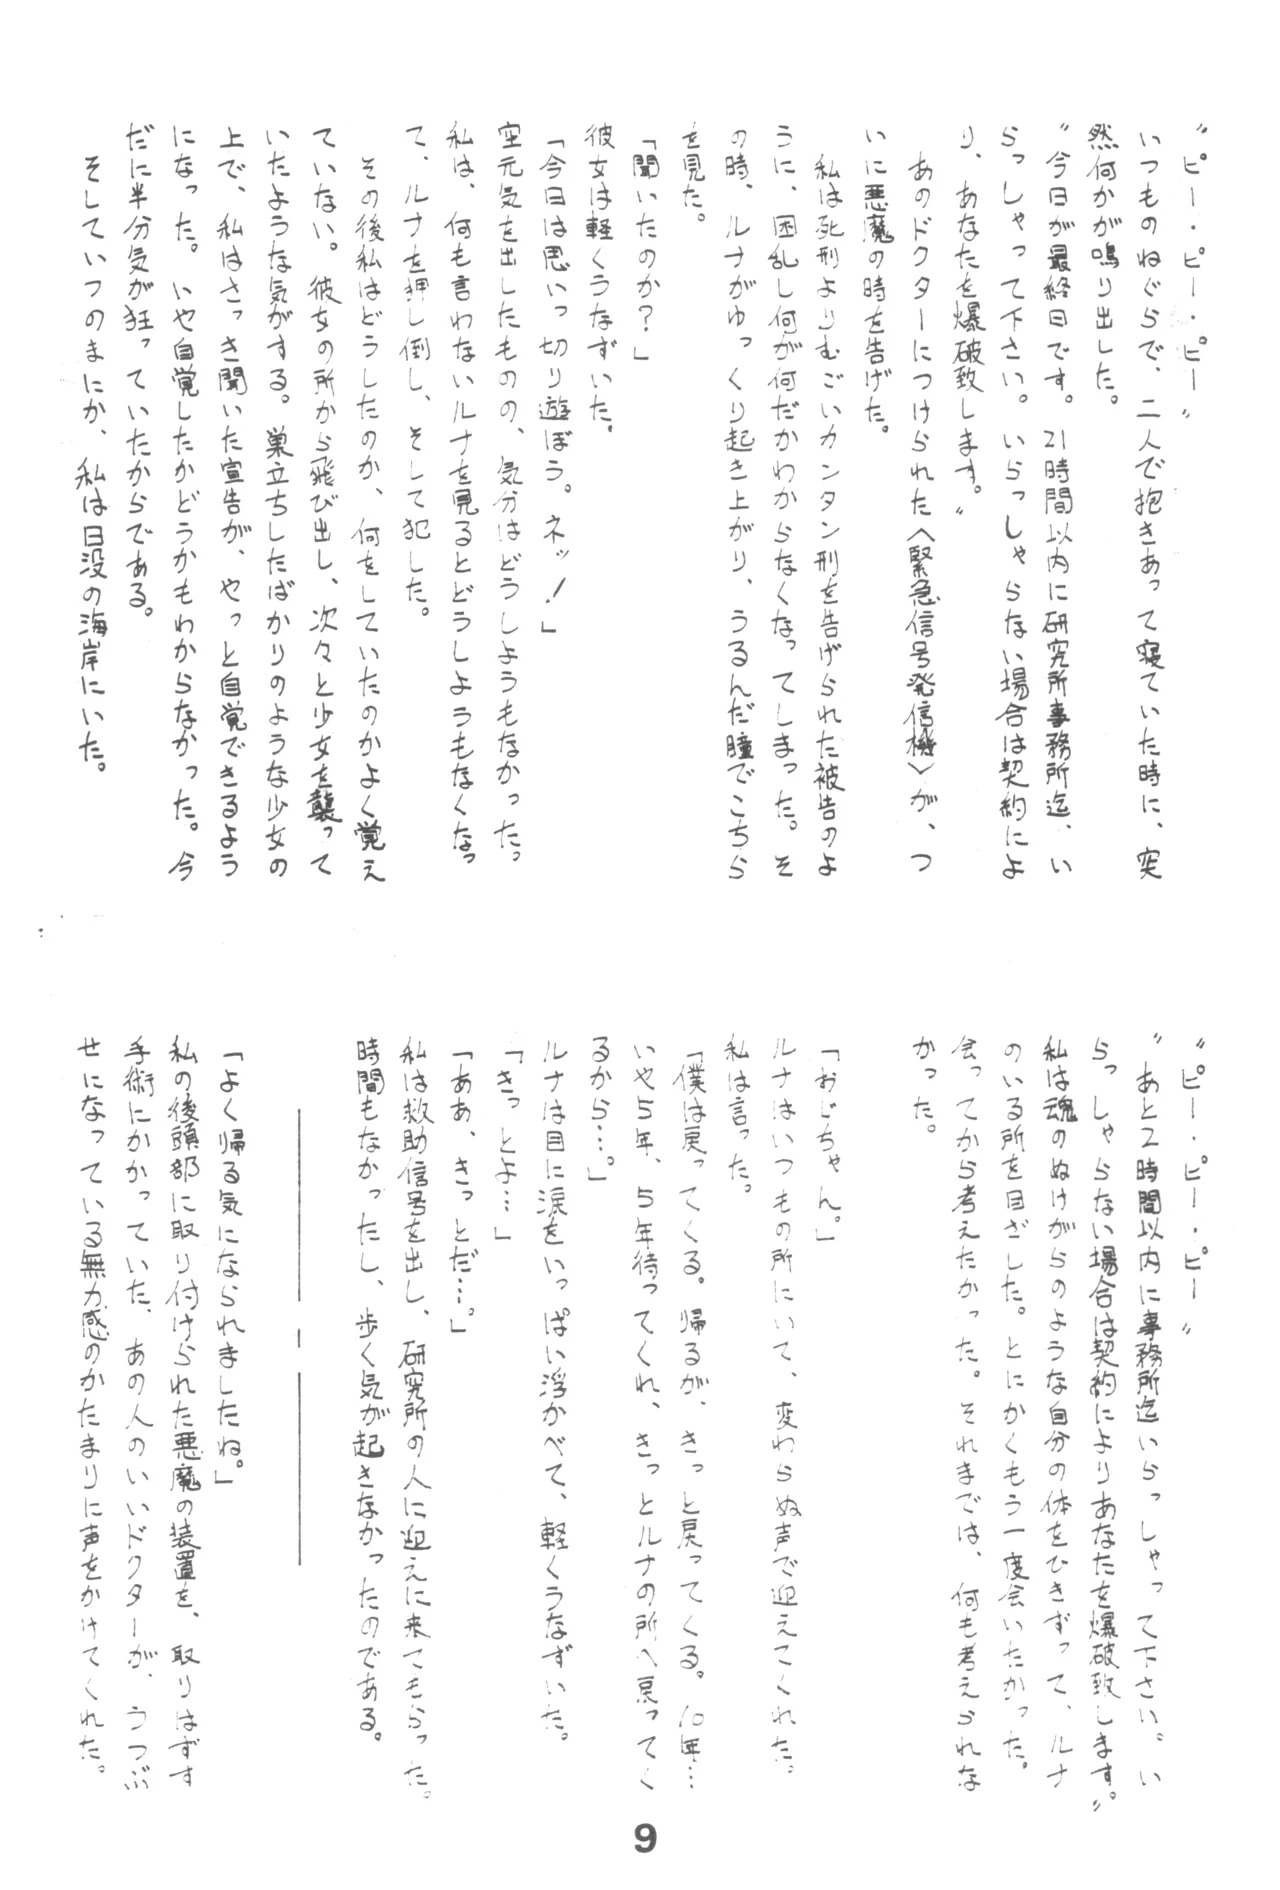 〝ピー・ピー・ピー〟
いつものねぐらで、二人で抱きあって寝ていた時に、突
然何かが鳴り出した。
〝今日が最終日です。21時間以内に研究所事務所迄、い
らっしゃって下さい。いらっしゃらない場合は契約によ
り、あなたを爆破致します。〟
あのドクターにつけられた〈緊急信号発信機〉が、つ
いに悪魔の時を告げた。
私は死刑よりむごいカンタン刑を告げられた被告のよ
うに、困乱し何が何だかわからなくなってしまった。そ
の時、ルナがゆっくり起き上がり、うるんだ瞳でこちら
を見た。
「聞いたのか?」
彼女は軽くうなずいた。
「今日は思いっ切り遊ぼう。ネッ!」
空元気を出したものの、気分はどうしようもなかった。
私は、何も言わないルナを見るとどうしようもなくなっ
て、ルナを押し倒し、そして犯した。
その後私はどうしたのか、何をしていたのかよく覚え
ていない。彼女の所から飛び出し、次々と少女を襲って
いたような気がする。巣立ちしたばかりのような少女の
上で、私はさっき聞いた宣告が、やっと自覚できるよう
になった。いや自覚したかどうかもわからなかった。今
だに半分気が狂っていたからである。
そしていつのまにか、私は日没の海岸にいた。
〝ピー・ピー・ピー〟
〝あと2時間以内に事務所迄いらっしゃって下さい。い
らっしゃらない場合は契約によりあなたを爆破致します。〟
私は魂のぬけがらのような自分の体をひきずって、ルナ
のいる所を目ざした。とにかくもう一度会いたかった。
会ってから考えたかった。それまでは、何も考えられな
かった。
「おじちゃん。」
ルナはいつもの所にいて、変わらぬ声で迎えてくれた。
私は言った。
「僕は戻ってくる。帰るが、きっと戻ってくる。10年…
いや5年、5年待ってくれ、きっとルナの所へ戻ってく
るから…。」
ルナは目に涙をいっぱい浮かべて、軽くうなずいた。
「きっとよ…」
「ああ、きっとだ…。」
私は救助信号を出し、研究所の人に迎えに来てもらった。
時間もなかったし、歩く気が起きなかったのである。
「よく帰る気になられましたね。」
私の後頭部に取り付けられた悪魔の装置を、取りはずす
手術にかかっていた、あの人のいいドクターが、うつぶ
せになっている無力感のかたまりに声をかけてくれた。
9